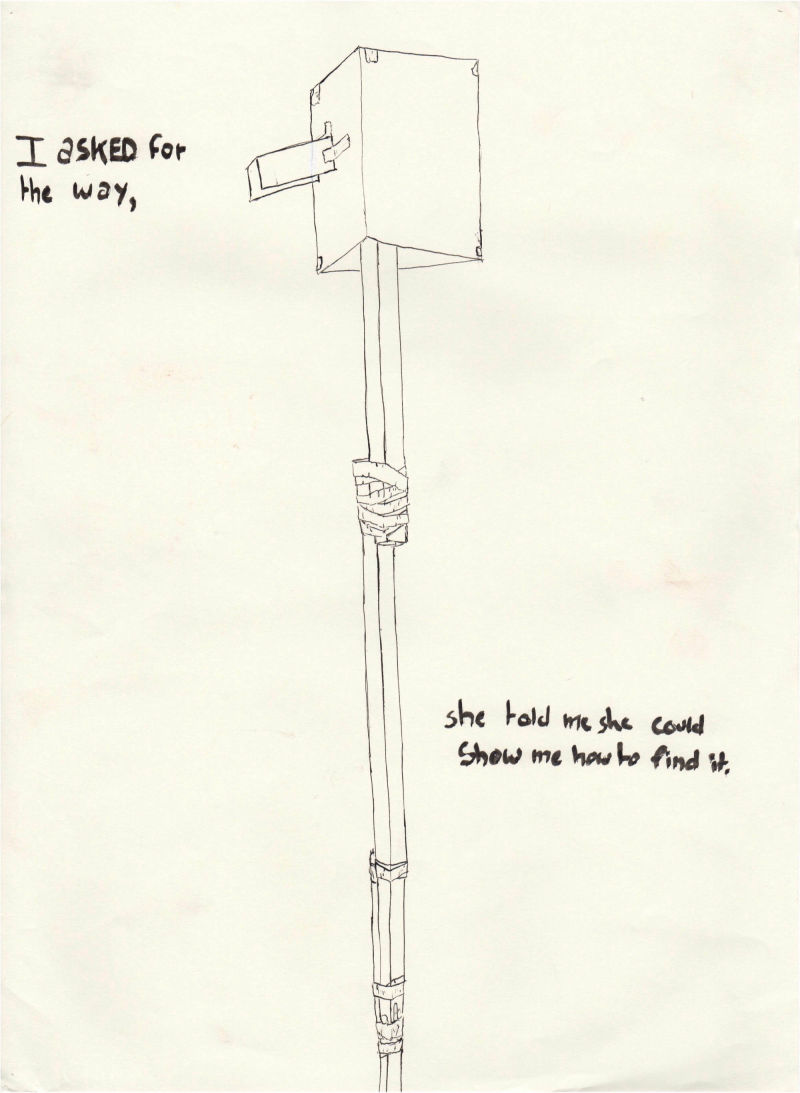 I aSKED for
the way,
she told me she could
Show me how to find it.